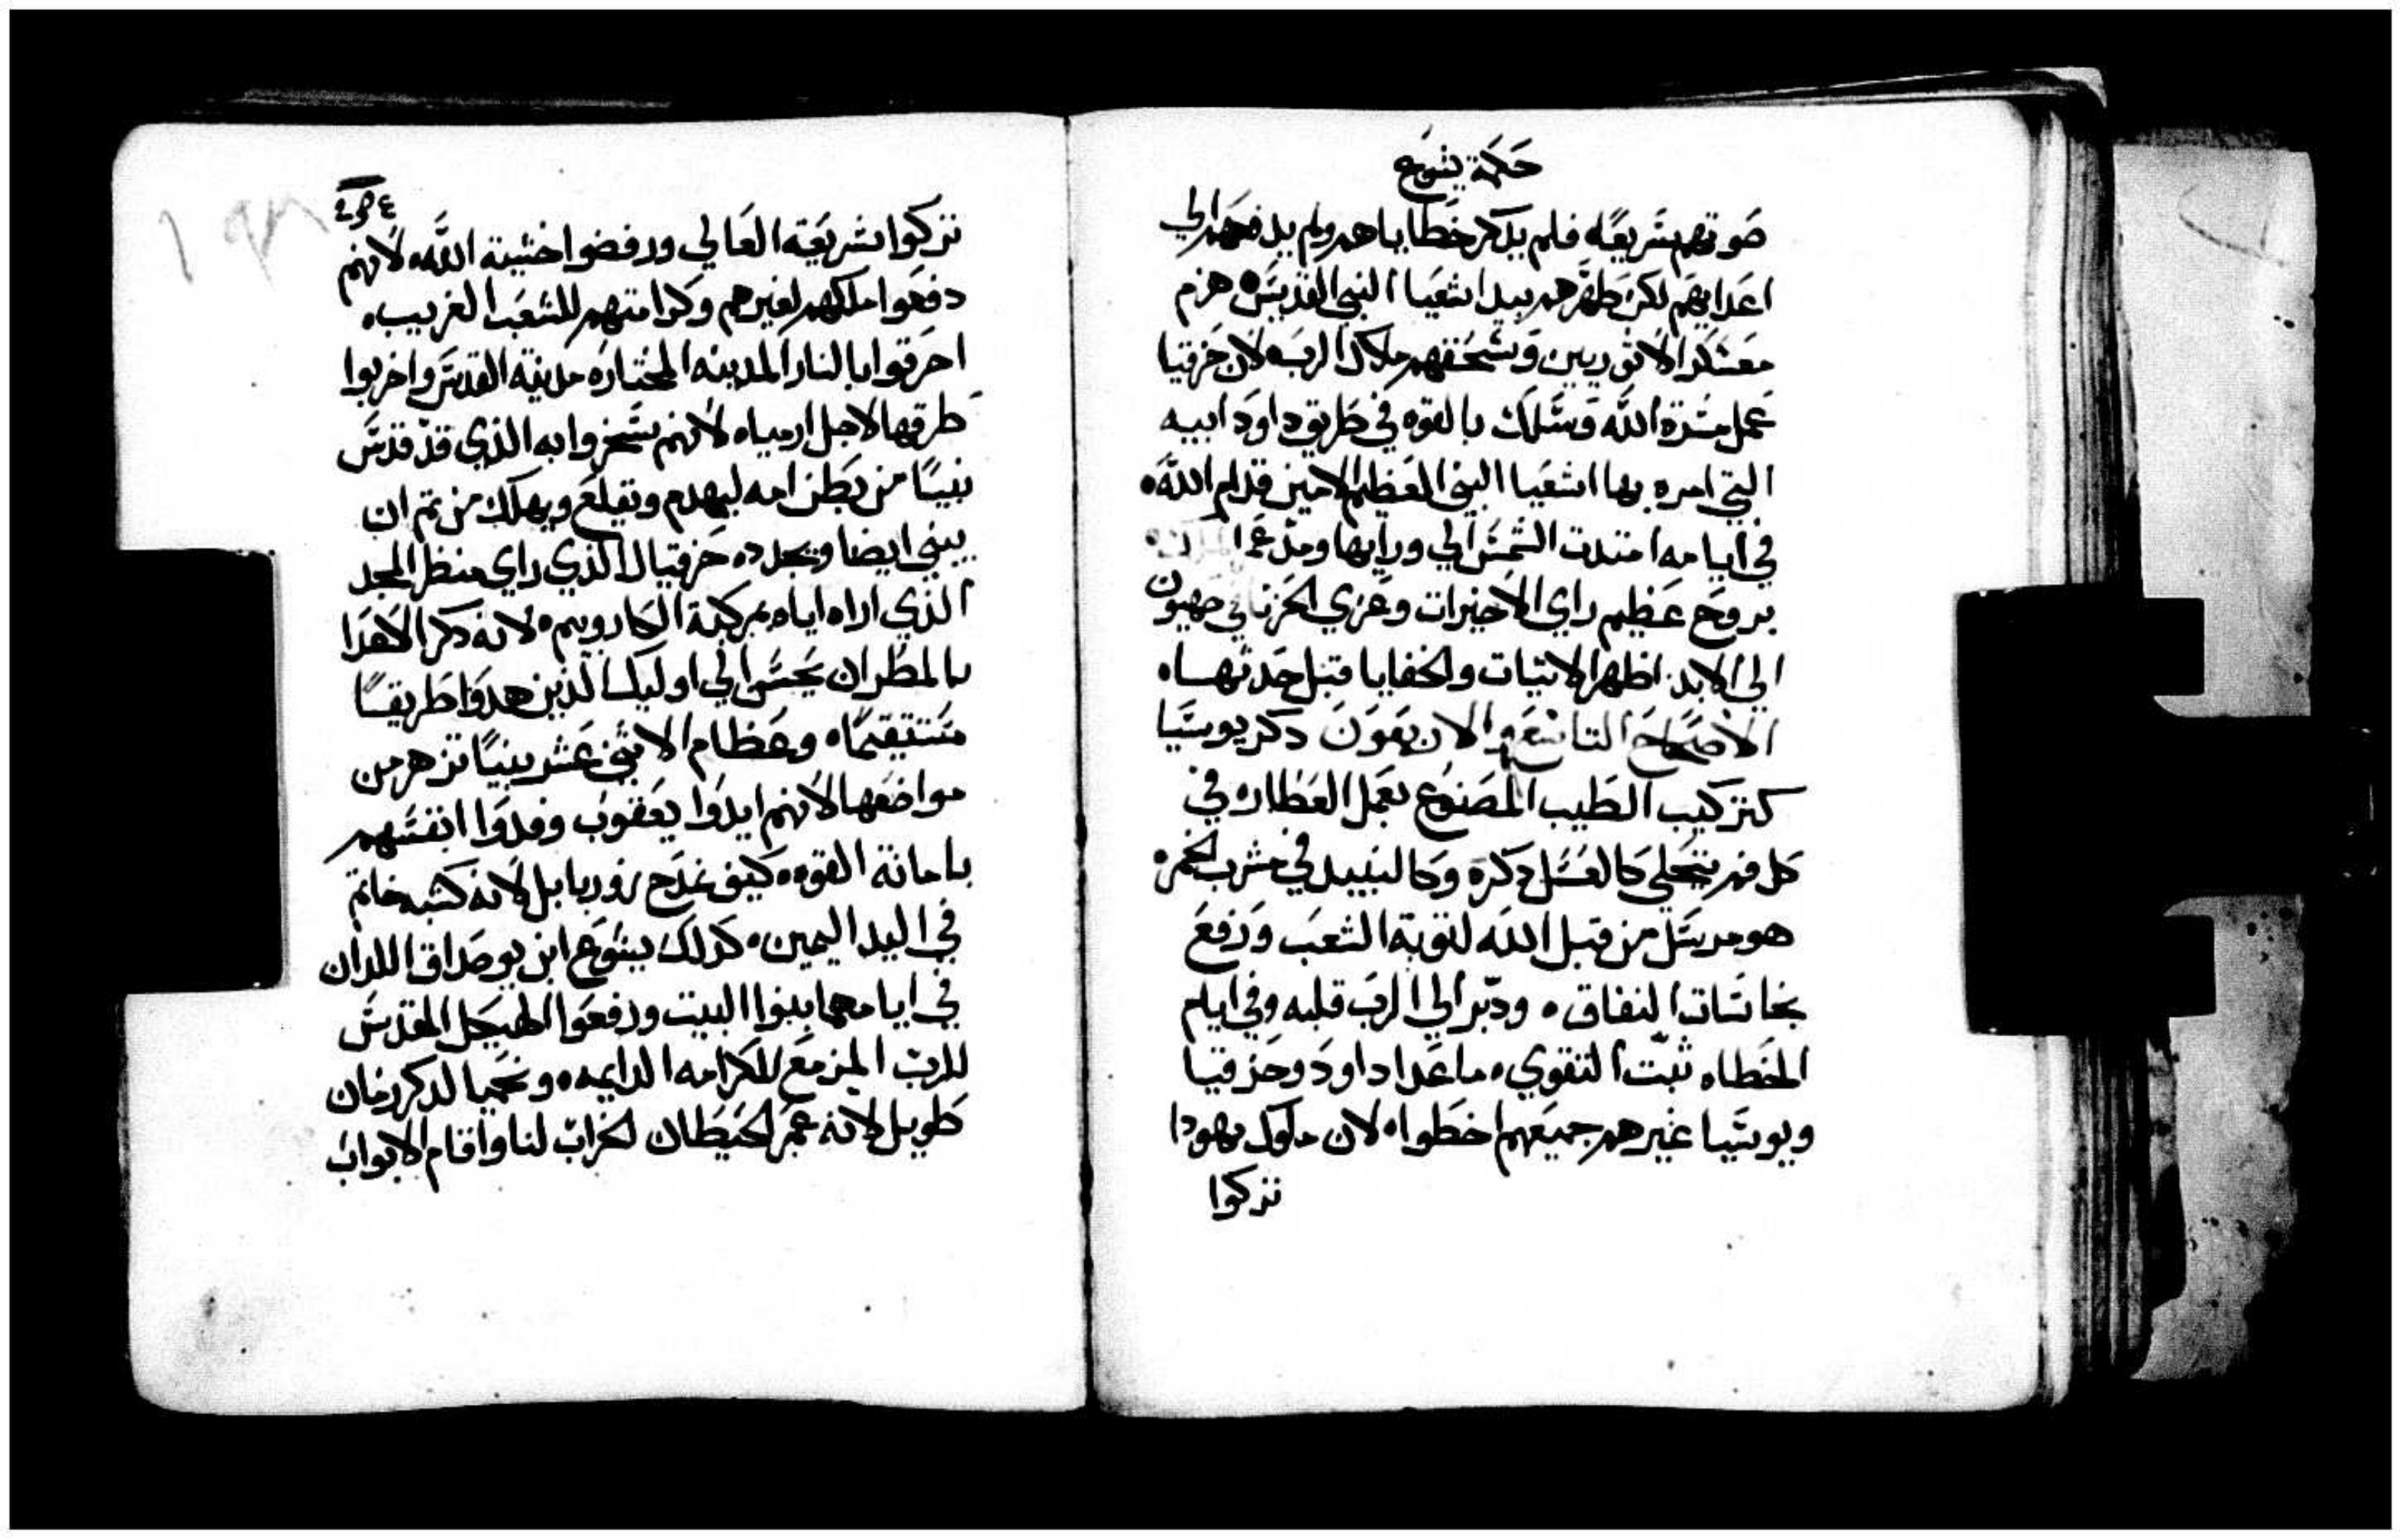 حكمة يشوع
صوتهم سريعًا، فلم يدكر خطاياهم ولم يدفعهم الي
اعدايهم لكن طهّرهم بيد اشعيا النبي القديس، هزم
معسكر الاثوريين وسحقهم ملاك الرب، لان حزقيا
عمل مسرة الله وسلك بالقوه في طريق داود ابيه
التي امره بها اشعيا النبي العظيم الامين قدام الله.
في ايامه امتدت الشمس الي ورايها ومد عمر الملك.
بروح عظيم راي الاخيرات وعزي الحزنا في صهيون
الي الابد. اظهر الاتيات والخفايا قبل حدثها.
الاصحاح التاسع والاربعون دكر يوسيا
كتركيب الطيب المصنوع بعمل العطار، في
كل فم يتحلي كالعسل دكره وكالنبيد في مشرب الخمر.
هو مرسل من قبل الله لتوبة الشعب ورفع
نجاسات النفاق. ودبر الي الرب قلبه وفي ايام
الخطاه ثبّت التقوي، ما عدا داود وحزقيا
ويوسيا غيرهم جميعهم اخطوا، لان ملوك يهودا
تركوا
تركوا شريعة العالي ورفضوا خشية الله، لانهم
دفعوا ملكهم لغيرهم وكرامتهم للشعب الغريب.
احرقوا بالنار المدينه المختاره مدينة القدس واخربوا
طرقها لاجل ارمياه لانهم سخروا به الذي قد قدس
نبيًا من بطن امه ليهدم ويقلع ويهلك من تم ان
يبني ايضا ويجدد، حزقيال الذي راي منظر المجد
الذي اراه اياه بمركبة الكاروبيم، لانه دكر الاعدا
بالمطر ان يحسن الي اوليك الذين هدوا طريقًا
مستقيمًا، وعظام الاثني عشر نبيًا تزهر من
مواضعها لانهم ايدوا يعقوب وفدوا انفسهم
بامانة القوه، كيف نمدح زوربابل لانه كشبه خاتم
في اليد اليمين، كدلك يشوع ابن يوصداق اللدان
في ايامهما بنوا البيت ورفعوا الهيكل المقدس
للرب المزمع للكرامه الدايمه، ونحميا لدكر زمان
طويل لانه عمّر الحيطان الخراب لنا واقام الابواب